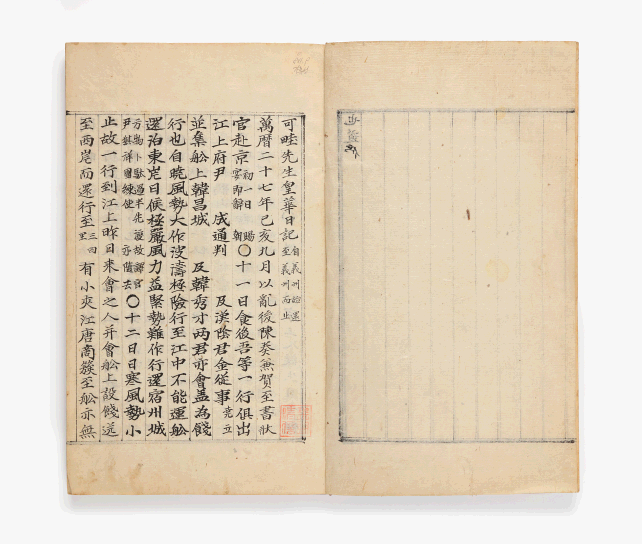 可畦先生皇華日記 自義州始還至義州而止
萬曆二十七年己亥九月以亂後陳奏兼賀至書狀
官赴京 初一日賜宴即辭朝 〇十一日食後吾等一行俱出
江上府尹 成通判 及漢陰君金從事
並集船上韓昌城 及韓秀才兩君亦會盖為餞
行也自曉風勢大作波濤極險行至江中不能運船
還泊東岸日候極嚴風力益緊勢難作行還宿州城
方物卜馱過半先渡故譯官尹 亦隨去 〇十二日日寒風勢小
止故一行到江上昨日來會之人并會船上設餞送
至西岸而還行至三四里 有小夾江唐商簇至船亦無